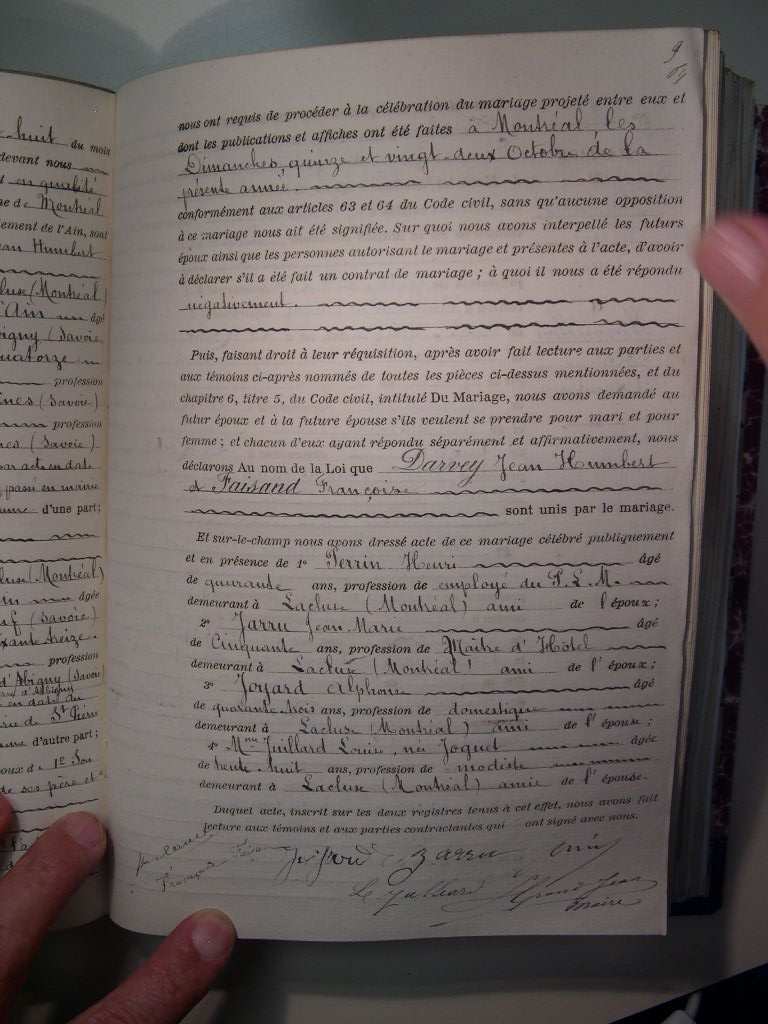 huit du mois
devant nous
en qualité
de Montréal
ement de l'Ain, sont
ean Humbert
(Montréal)
l'Ain âgé
bigny (Savoie
uatorze
profession
(Savoie)
profession
(Savoie)
par acte en date
passé en mairie
d'une part;
(Montréal)
âgée
(Savoie)
ixante treize.
profession
d'Albigny (Savoie)
en date du
rie de St Pierre
d'autre part;
oux de 1° Son
de ses père et
9
nous ont requis de procéder à la célébration du mariage projeté entre eux et
dont les publications et affiches ont été faites à Montréal, les
Dimanches, quinze et vingt-deux Octobre de la
présente année.
conformément aux articles 63 et 64 du Code civil, sans qu'aucune opposition
à ce mariage nous ait été signifiée. Sur quoi nous avons interpellé les futurs
époux ainsi que les personnes autorisant le mariage et présentes à l'acte, d'avoir
à déclarer s'il a été fait un contrat de mariage; à quoi il nous a été répondu
négativement.
Puis, faisant droit à leur réquisition, après avoir fait lecture aux parties et
aux témoins ci-après nommés de toutes les pièces ci-dessus mentionnées, et du
chapitre 6, titre 5, du Code civil, intitulé Du Mariage, nous avons demandé au
futur époux et à la future épouse s'ils veulent se prendre pour mari et pour
femme; et chacun d'eux ayant répondu séparément et affirmativement, nous
déclarons Au nom de la Loi que Darvey Jean Humbert
et Faisand Françoise
sont unis par le mariage.
Et sur-le-champ nous avons dressé acte de ce mariage célébré publiquement
et en présence de 1° Perrin Henri âgé
de quarante ans, profession de employé du P.L.M.
demeurant à Lacluse (Montréal) ami de l'époux;
2° Jarru Jean-Marie âgé
de Cinquante ans, profession de Maître d'Hôtel
demeurant à Lacluse (Montréal) ami de l'époux;
3° Joyard Alphonse âgé
de quarante-trois ans, profession de domestique
demeurant à Lacluse (Montréal) ami de l'épouse;
4° Mme Juillard Louise, née Joquet âgée
de trente-huit ans, profession de modiste
demeurant à Lacluse (Montréal) amie de l'épouse.
Duquel acte, inscrit sur les deux registres tenus à cet effet, nous avons fait
lecture aux témoins et aux parties contractantes qui ont signé avec nous.